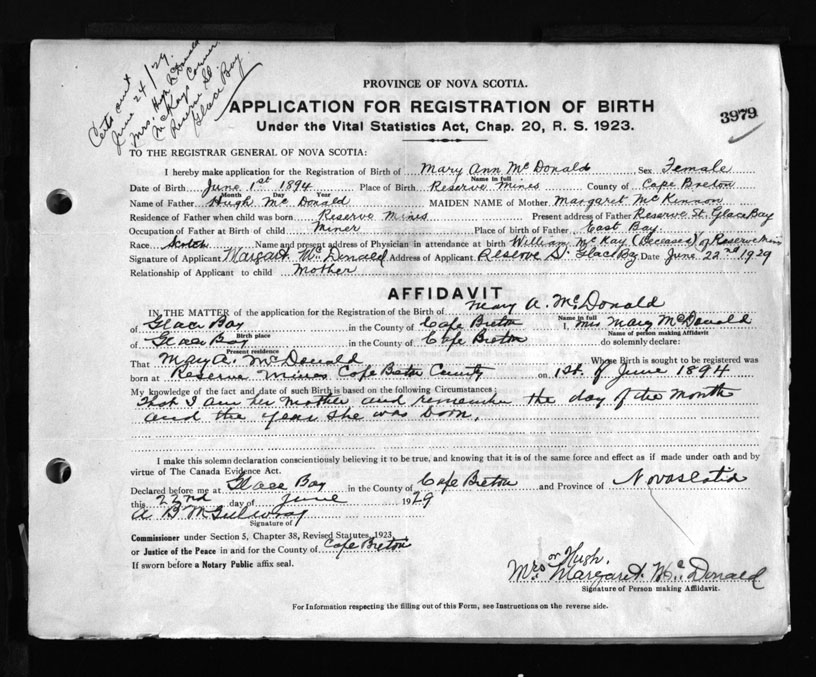 Certs out
June 24/29.
Mrs. Hugh McDonald
McKays Corner
Reserve St.
Glace Bay.
PROVINCE OF NOVA SCOTIA.
APPLICATION FOR REGISTRATION OF BIRTH
3979
Under the Vital Statistics Act, Chap. 20, R. S. 1923.
TO THE REGISTRAR GENERAL OF NOVA SCOTIA:
I hereby make application for the Registration of Birth of Mary Ann McDonald Sex Female
Name in full
Date of Birth June 1st 1894 Place of Birth Reserve Mines County of Cape Breton
Month Day Year
Name of Father Hugh McDonald MAIDEN NAME of Mother Margaret McKinnon
Residence of Father when child was born Reserve Mines Present address of Father Reserve St. Glace Bay
Occupation of Father at Birth of child Miner Place of birth of Father East Bay.
Race Scotch Name and present address of Physician in attendance at birth William McKay (Deceased) of Reserve Mines
Signature of Applicant Margaret McDonald Address of Applicant Reserve St. Glace Bay Date June 22nd 1929
Relationship of Applicant to child Mother
AFFIDAVIT
IN THE MATTER of the application of the Registration of the Birth of Mary A. McDonald
Name in full
of Glace Bay in the County of Cape Breton I, Mrs Mary McDonald
Birth place Name of person making Affidavit
of Glace Bay in the County of Cape Breton do solemnly declare:
Present residence
That Mary A. McDonald Whose Birth is sought to be registered was
born at Reserve Mines Cape Breton County on 1st. of June 1894
My knowledge of the fact and date of such Birth is based on the following Circumstances:
That I am her Mother and remember the day of the Month
and the year she was born.
I make this solemn declaration conscientiously believing it to be true, and knowing that it is of the same force and effect as if made under oath and by
virtue of The Canada Evidence Act.
Declared before me at Glace Bay in the County of Cape Breton and Province of Novascotia
this 22nd day of June 1929
A B
Signature of
Commissioner under Section 5, Chapter 38, Revised Statutes, 1923
or Justice of the Peace in and for the County of Cape Breton
If sworn before a Notary Public affix seal.
or Hugh.
Mrs. Margaret McDonald
Signature of Person making Affidavit.
For Information respecting the filling out of this Form, see Instructions on the reverse side.